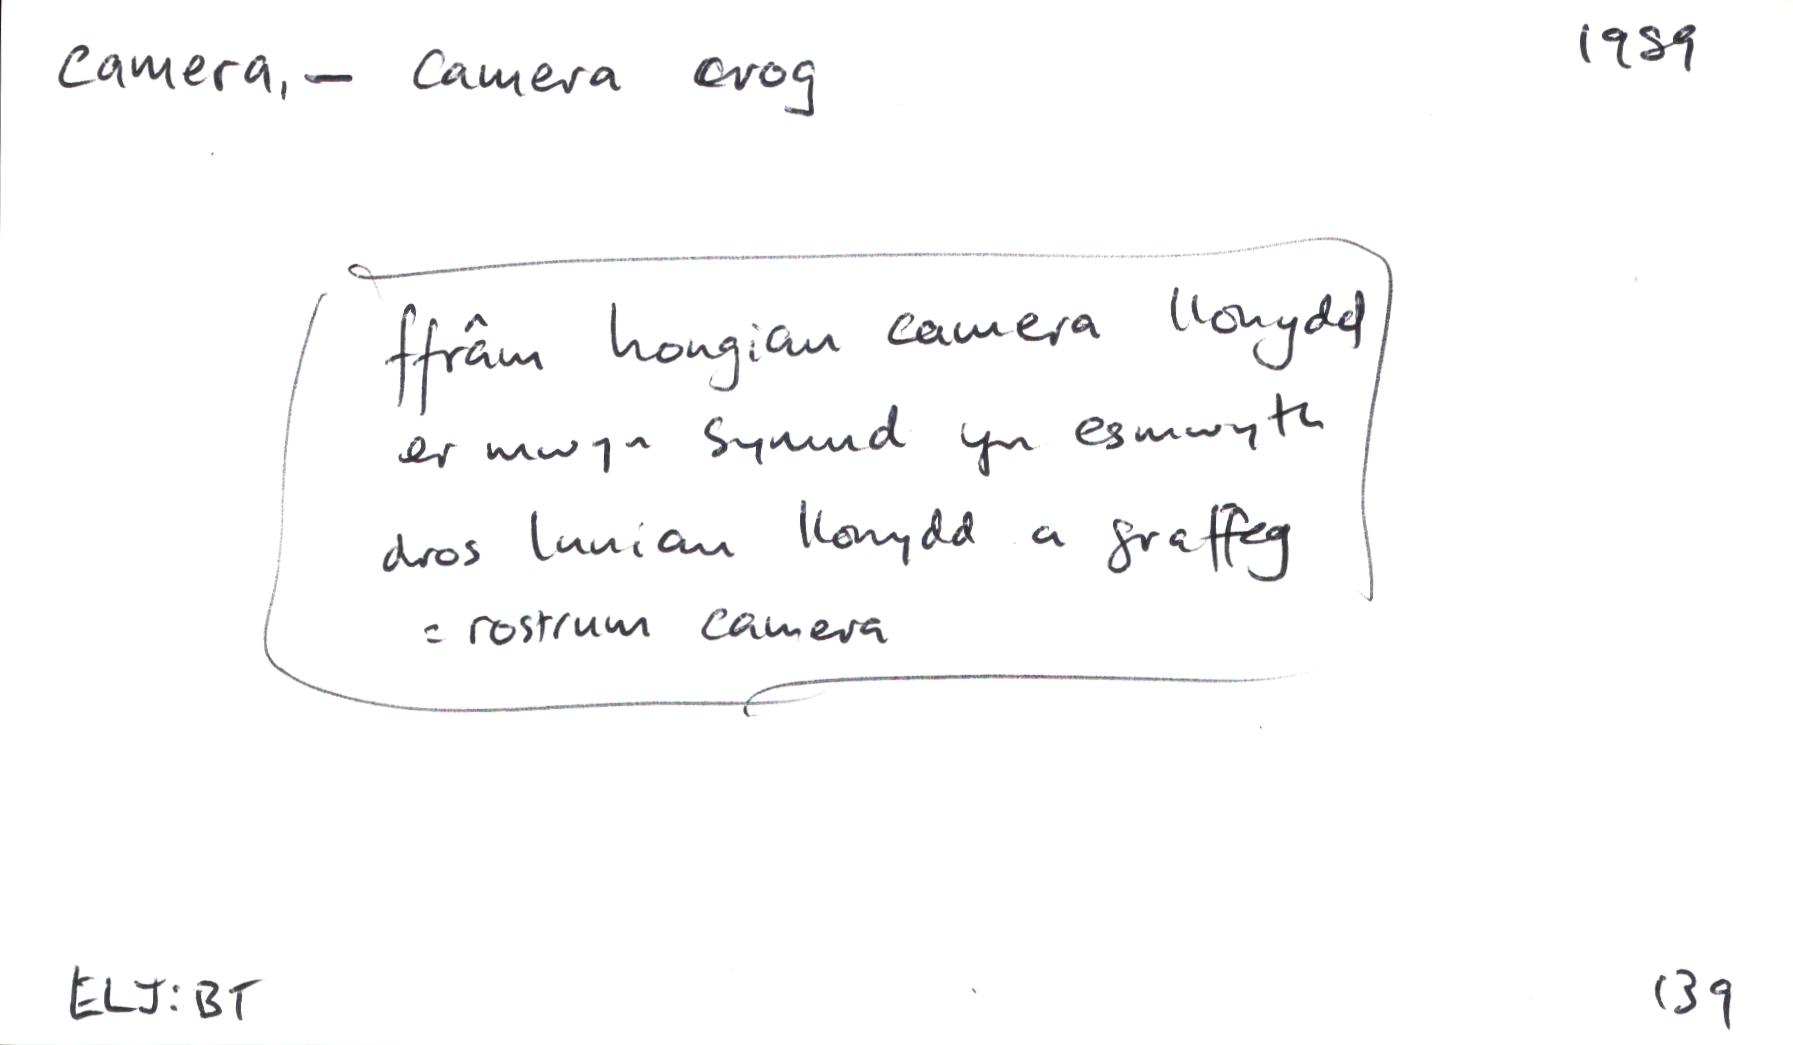 camera, — camera crog 1989
ffrâm hongian camera llonydd
er mwyn symud yn esmwyth
dros luniau llonydd a graffeg
= rostrum camera
ELJ:BT 139